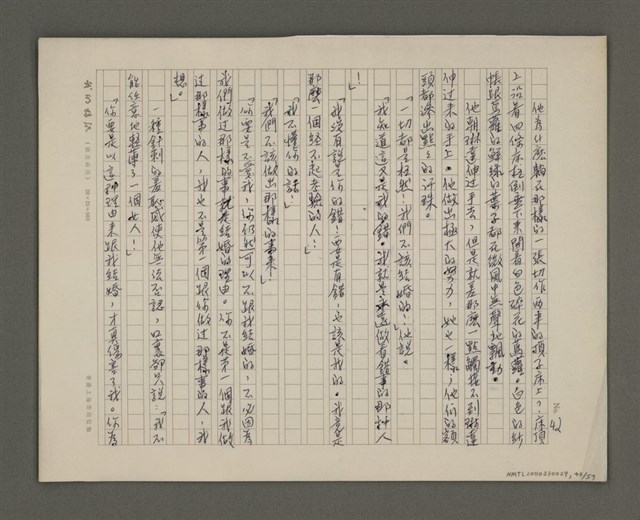 42
他為什麼躺在那樣的一張切作兩半的頂子床上？床頂
上沿着四條床柱倒垂下來開着白色碎花的蔦蘿。白色的紗
帳跟蔦蘿的鮮綠的葉子都在微風中無聲地飄動。
他朝琳達伸過手去，但是就差那麼一點觸摸不到琳達
伸過來的手上。他做出極大的努力，她也一樣，他們的額
頭都滲出點點的汗珠。
「一切都是枉然！我們不該結婚的！」他說。
「我知道這又是我的錯。我就是永遠做着錯事的那種人
！」
「我沒有說是你的錯！要是有錯，也該是我的。我竟是
那麼一個經不起考驗的人！」
「我不懂你的話！」
「我們不該做出那樣的事來！」
「你要是不愛我，你仍然可以不跟我結婚的，不必因為
我們做过那樣的事就是結婚的理由。你不是第一個跟我做
过那樣事的人，我也不是第一個跟你做过那樣事的人，我
想。」
一種針刺的羞恥感使他無法否認，口裏卻只說：「我不
能任意地輕薄了一個女人！」
「你要是以這種理由來跟我結婚，才真傷害了我。你為
NMTL20000230029, 42/59